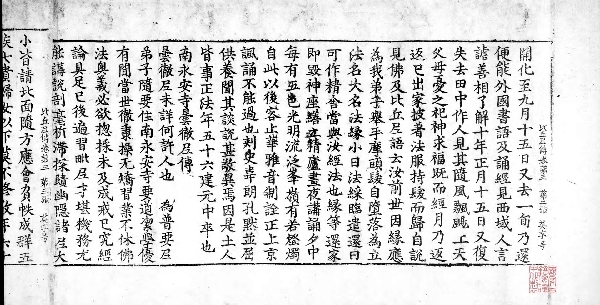 開化至九月十五日又去一旬乃還
便能外國書語及誦經見西域人言
謔善相了解十年正月十五日又復
失去田中作人見其隨風飄颺上天
父母憂之祀神求福既而經月乃返
返已出家披著法服持髮而歸自說
見佛及比丘尼語云汝前世因緣應
為我弟子舉手摩頭髮自墮落為立
法名大名法緣小曰法綵臨遣還曰
可作精舍當與汝經法也緣等還家
即毀神座繕立精廬晝夜講誦夕中
每有五色光明流泛峯嶺有若燈燭
自此以後容止華雅音制詮正上京
諷誦不能過也刺史韋朗孔默並屈
供養聞其談說甚敬異焉因是土人
皆事正法年五十六建元中卒也
南永安寺曇徹尼傳
曇徹尼未詳何許人也 為普要尼
弟子隨要住南永安寺要道潔學優
有聞當世徹秉操无矯習業不休佛
法奧義必欲總採未及成戒已究經
論具足已後遍習毗尼才堪機務尤
能講說剖毫析滯探賾幽隱諸尼大
小皆請北面隨方應會負帙成群五
侯七貴婦女以下莫不修敬年六十